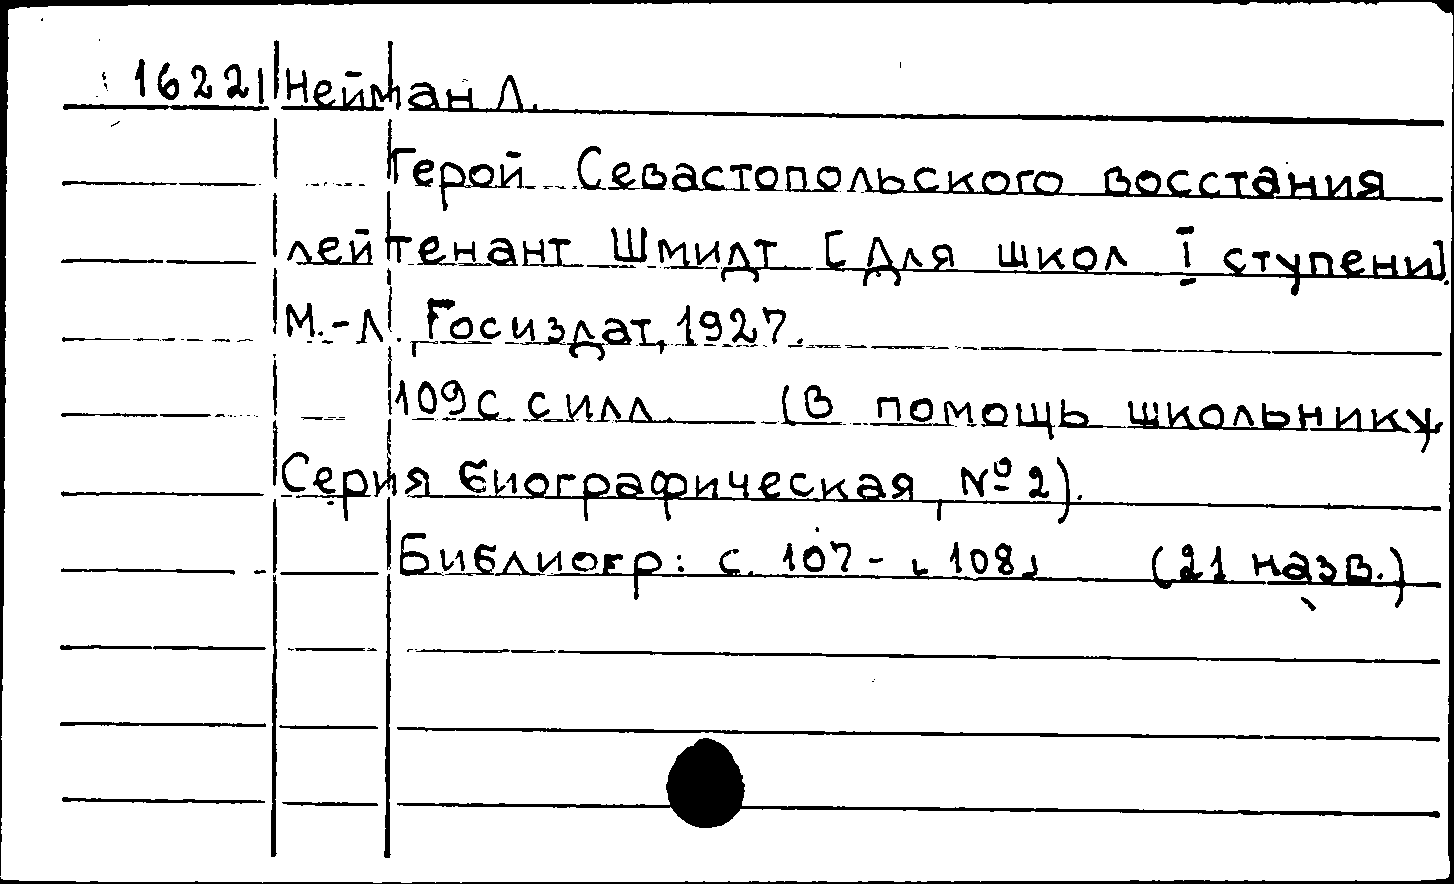 16221 Нейман Л.
Герой Севастопольского восстания
лейтенант Шмидт [Для школ I ступени].
М.-Л., Госиздат, 1927.
109 с с илл. (В помощь школьнику.
Серия биографическая, № 2).
Библиогр: с. 107-[108] (21 назв.)